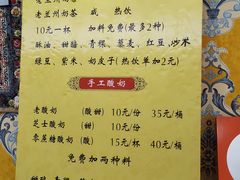 老兰州奶茶 或 热饮
10元一杯 加料免费(最多2种)
酥油、甜醅、青稞、藜麦、红豆、炒米
绿豆、紫米、奶皮子(热饮单加2元)
手工酸奶
老酸奶 (酸甜) 10元/份 35元/桶
芝士酸奶 (甜) 10元/份
零蔗糖酸奶 (酸) 15元/杯 40元/桶
免费加两种料